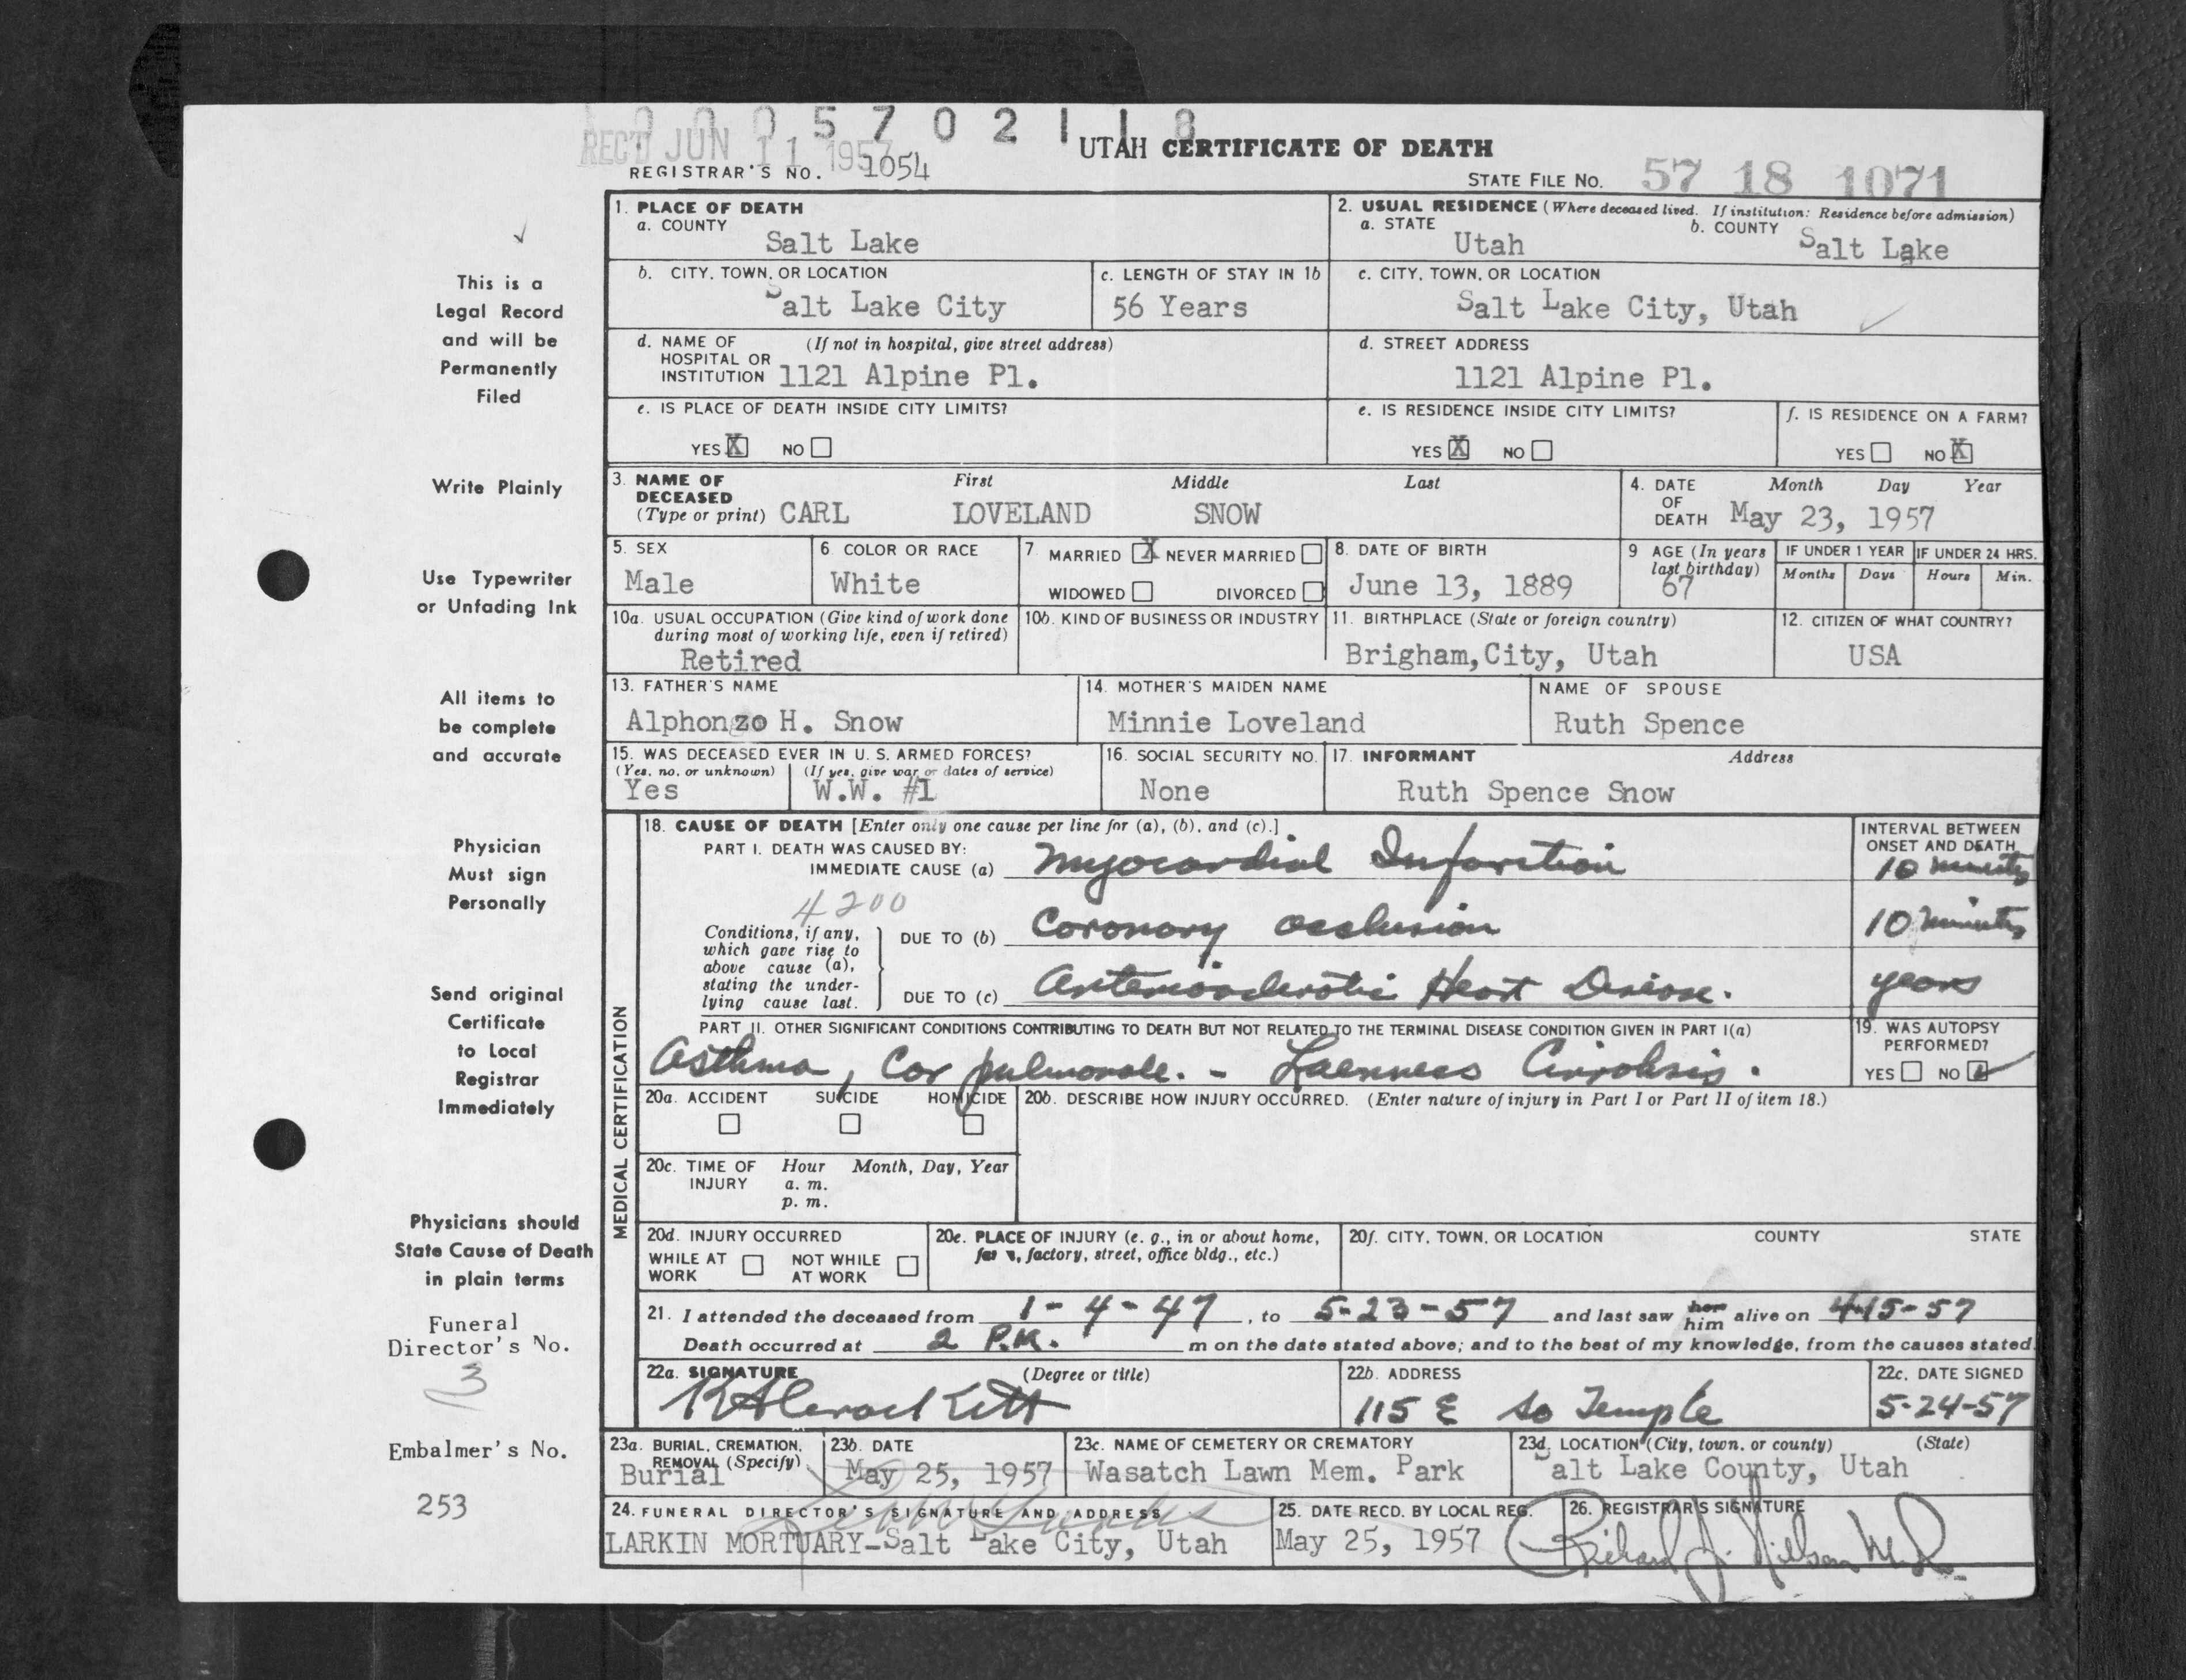 1 0 0 0 5 7 0 2 1 1 8
REC'D JUN 11 1957
UTAH CERTIFICATE OF DEATH
REGISTRAR'S NO. 1054
STATE FILE NO. 57 18 1071
This is a
Legal Record
and will be
Permanently
Filed
Write Plainly
Use Typewriter
or Unfading Ink
All items to
be complete
and accurate
Physician
Must sign
Personally
Send original
Certificate
to Local
Registrar
Immediately
Physicians should
State Cause of Death
in plain terms
Funeral
Director's No.
3
Embalmer's No.
253
1. PLACE OF DEATH
a. COUNTY
Salt Lake
2. USUAL RESIDENCE (Where deceased lived. If institution: Residence before admission)
a. STATE
Utah
b. COUNTY
Salt Lake
b. CITY, TOWN, OR LOCATION
Salt Lake City
c. LENGTH OF STAY IN 1b
56 Years
c. CITY, TOWN, OR LOCATION
Salt Lake City, Utah
d. NAME OF (If not in hospital, give street address)
HOSPITAL OR
INSTITUTION 1121 Alpine Pl.
d. STREET ADDRESS
1121 Alpine Pl.
e. IS PLACE OF DEATH INSIDE CITY LIMITS?
YES X NO
e. IS RESIDENCE INSIDE CITY LIMITS?
YES X NO
f. IS RESIDENCE ON A FARM?
YES NO X
3. NAME OF First Middle Last
DECEASED
(Type or print) CARL LOVELAND SNOW
4. DATE Month Day Year
OF
DEATH May 23, 1957
5. SEX
Male
6. COLOR OR RACE
White
7. MARRIED X NEVER MARRIED
WIDOWED DIVORCED
8. DATE OF BIRTH
June 13, 1889
9 AGE (In years
last birthday)
67
IF UNDER 1 YEAR
Months Days
IF UNDER 24 HRS.
Hours Min.
10a. USUAL OCCUPATION (Give kind of work done
during most of working life, even if retired)
Retired
10b. KIND OF BUSINESS OR INDUSTRY
11. BIRTHPLACE (State or foreign country)
Brigham,City, Utah
12. CITIZEN OF WHAT COUNTRY?
USA
13. FATHER'S NAME
Alphonzo H. Snow
14. MOTHER'S MAIDEN NAME
Minnie Loveland
NAME OF SPOUSE
Ruth Spence
15. WAS DECEASED EVER IN U. S. ARMED FORCES?
(Yes, no, or unknown) (If yes, give war or dates of service)
Yes W.W. #1
16. SOCIAL SECURITY NO.
None
17. INFORMANT Address
Ruth Spence Snow
MEDICAL CERTIFICATION
18. CAUSE OF DEATH [Enter only one cause per line for (a), (b), and (c).]
PART I. DEATH WAS CAUSED BY:
IMMEDIATE CAUSE (a) Myocardial Infarction
INTERVAL BETWEEN
ONSET AND DEATH
10 minutes
4200
Conditions, if any,
which gave rise to
above cause (a),
stating the under-
lying cause last.
DUE TO (b) Coronary occlusion
10 minutes
DUE TO (c) Arteriosclerotic Heart Disease.
years
PART II. OTHER SIGNIFICANT CONDITIONS CONTRIBUTING TO DEATH BUT NOT RELATED TO THE TERMINAL DISEASE CONDITION GIVEN IN PART I(a)
Asthma, Cor pulmonale. - Laennecs Cirrohsis.
19. WAS AUTOPSY
PERFORMED?
YES NO ✓
20a. ACCIDENT SUICIDE HOMICIDE
20b. DESCRIBE HOW INJURY OCCURRED. (Enter nature of injury in Part I or Part II of item 18.)
20c. TIME OF Hour Month, Day, Year
INJURY a. m.
p. m.
20d. INJURY OCCURRED
WHILE AT NOT WHILE
WORK AT WORK
20e. PLACE OF INJURY (e. g., in or about home,
farm, factory, street, office bldg., etc.)
20f. CITY, TOWN, OR LOCATION COUNTY STATE
21. I attended the deceased from 1-4-47, to 5-23-57 and last saw her him alive on 4-15-57
Death occurred at 2 P.M. m on the date stated above; and to the best of my knowledge, from the causes stated.
22a. SIGNATURE (Degree or title)
22b. ADDRESS
115 E So Temple
22c. DATE SIGNED
5-24-57
23a. BURIAL, CREMATION,
REMOVAL (Specify)
Burial
23b. DATE
May 25, 1957
23c. NAME OF CEMETERY OR CREMATORY
Wasatch Lawn Mem. Park
23d. LOCATION (City, town, or county) (State)
Salt Lake County, Utah
24. FUNERAL DIRECTOR'S SIGNATURE AND ADDRESS
LARKIN MORTUARY-Salt Lake City, Utah
25. DATE RECD. BY LOCAL REG.
May 25, 1957
26. REGISTRAR'S SIGNATURE
Richard J. Nilsen M.D.